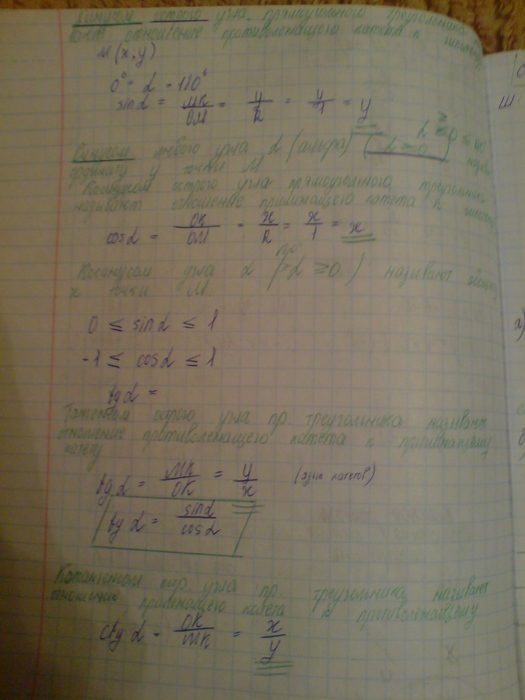 Синусом острого угла прямоугольного треугольника
отношение противолежащего катета к
M (x, y)
0° - α - 180°
sin α = MK/OM = y/R = y/1 = y
Синусом любого угла α (альфа)
ординату y точки M
Косинусом острого угла прямоугольного
называют отношение прилежащего катета к
cos α = OK/OM = x/R = x/1 = x
Косинусом угла α называют
x точки M.
0 ≤ sin α ≤ 1
-1 ≤ cos α ≤ 1
tg α =
Тангенсом острого угла пр. треугольника называют
отношение противолежащего катета к прилежащему
катету
tg α = MK/OK = y/x
tg α = sin α/cos α
Котангенсом угла пр. треугольника называют
отношение прилежащего катета к противолежащему
ctg α - OK/MK = x/y